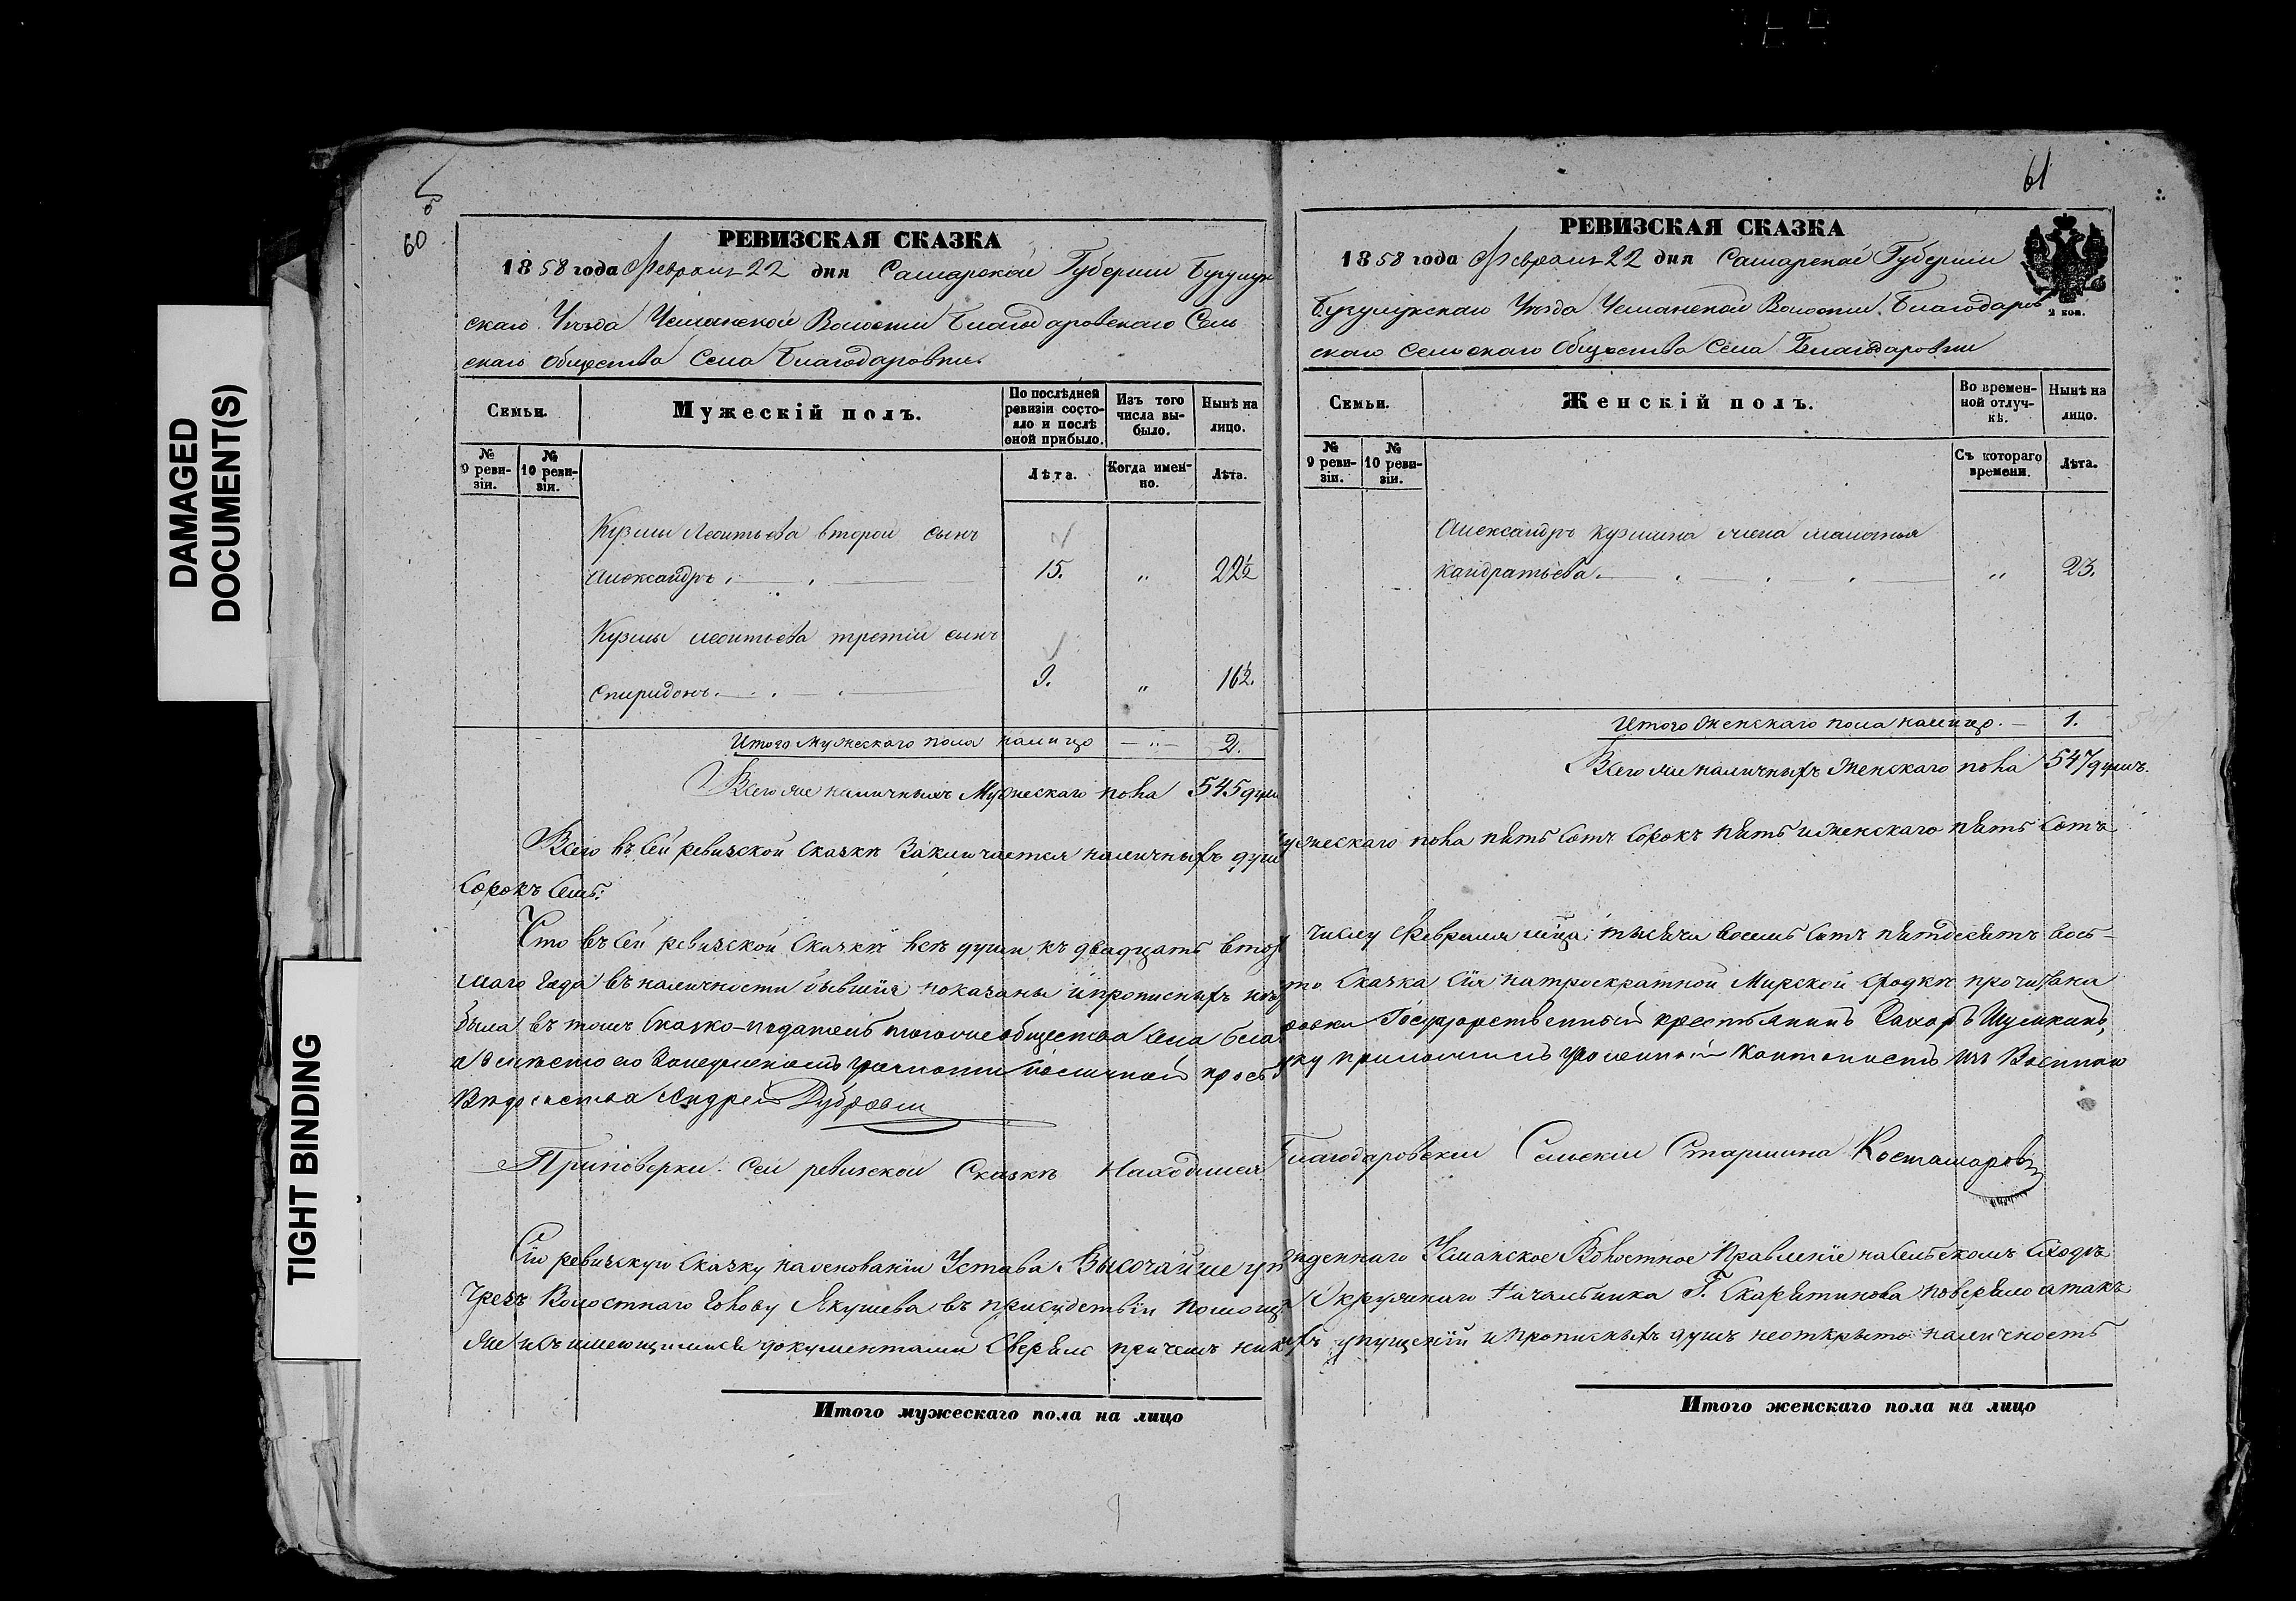 DAMAGED
DOCUMENT(S)
TIGHT BINDING
60
РЕВИЗСКАЯ СКАЗКА
1858 года Февраля 22 дня Самарской Губерніи Бугульм
скаго Уѣзда Чеманской Волости Благодаровскаго Сель
скаго общества Села Благодаровки
Семьи.
Мужескій полъ.
По послѣдней ревизіи состояло и послѣ оной прибыло.
Изъ того числа выбыло.
Нынѣ на лицо.
№ 9 ревизіи.
№ 10 ревизіи.
Лѣта.
Когда именно.
Лѣта.
Кузмы Леонтьева второй сынъ
Александръ 15. „ 22½
Кузмы Леонтьева третій сынъ
Спиридонъ 9. „ 16½.
Итого Мужескаго пола налицо — „ — 2.
Всего же наличныхъ Мужескаго пола 545 душ
61
РЕВИЗСКАЯ СКАЗКА
1858 года Февраля 22 дня Самарской Губерніи
Уѣзда Чеманской Волости Благодаров
скаго Сельскаго Общества Села Благодаровки
2 коп.
Семьи.
Женскій полъ.
Во временной отлучкѣ.
Нынѣ на лицо.
№ 9 ревизіи.
№ 10 ревизіи.
Съ котораго времени.
Лѣта.
Александръ Кузмина жена
Кандратьева „ 23.
Итого Женскаго пола налицо. — 1.
Всего же наличныхъ Женскаго пола 547 душъ.
Всего въ сей ревизской Сказкѣ Заключается наличныхъ душ ужескаго пола пять Сотъ Сорокъ пять и Женскаго пять Сотъ
Сорокъ Семь.
Что въ сей ревизской Сказкѣ всѣ души къ двадцать втор числу Февраля мѣца тысяча восемь Сотъ пятдесятъ вось-
маго года въ наличности бывшія показаны и прописныхъ то Сказка Сія на троекратной Мирской Сходкѣ прочитана
была въ томъ Сказко-податель тогоже общества Села Государственный крестьянинъ Захаръ
а вмѣсто его грамоти личной прозьб приложилъ Кантонистъ изъ Военнаго
Андрей
При поверки сей ревизской Сказкѣ Находился Благодаровскій Сельскій Старшина
Сію ревизскую Сказку на основаніи Устава Высочайше денного Волостное Правленіе на Сельскомъ Сходѣ
Чрезъ Волостнаго Голову Якушева въ присудствіи помощ Окружнаго Начальника Г. Скарятинова поверяло а такъ
же и съ имеющимися документами Сверяло причемъ ник упущеній и прописныхъ душъ неоткрыто наличность
Итого мужескаго пола на лицо
Итого женскаго пола на лицо